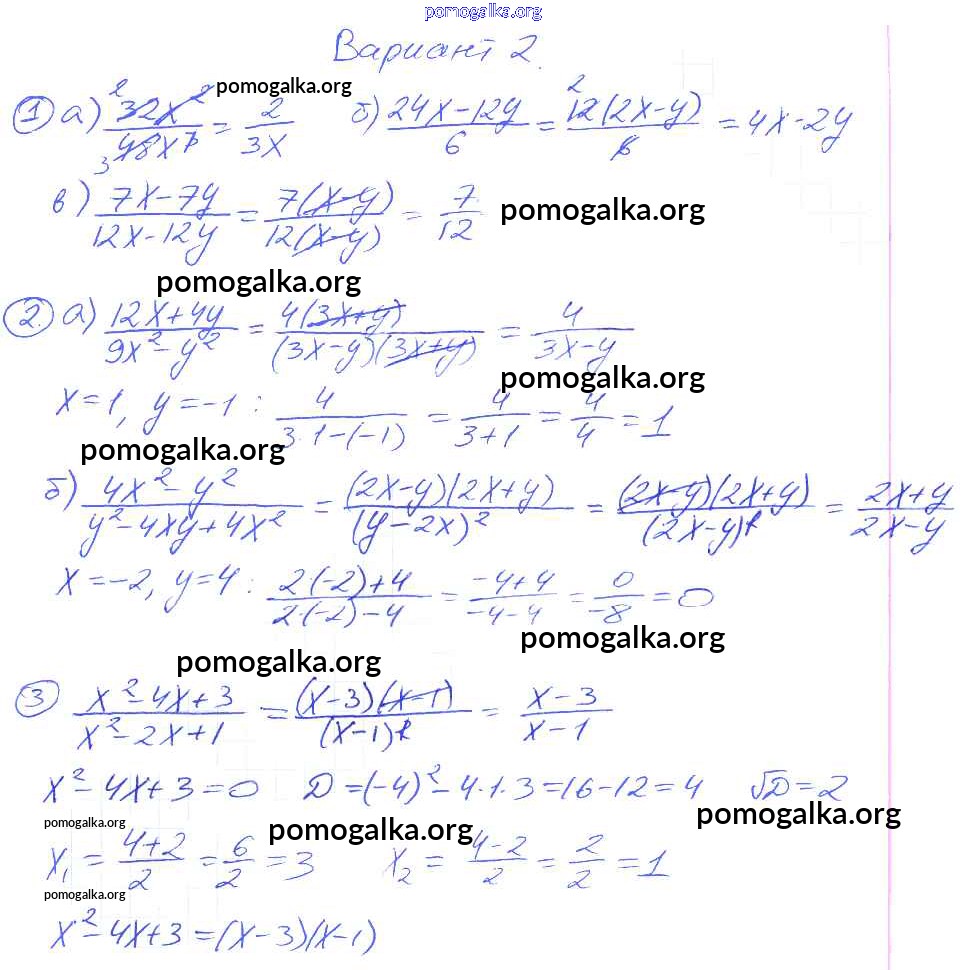 pomogalka.org
Вариант 2.
pomogalka.org
1 а) 32x²/48x³ = 2/3x б) 24x-12y/6 = 12(2x-y)/6 = 4x-2y
в) 7x-7y/12x-12y = 7(x-y)/12(x-y) = 7/12 pomogalka.org
pomogalka.org
2. а) 12x+4y/9x²-y² = 4(3x+y)/(3x-y)(3x+y) = 4/3x-y
pomogalka.org
x=1, y=-1 : 4/3·1-(-1) = 4/3+1 = 4/4 = 1
pomogalka.org
б) 4x²-y²/y²-4xy+4x² = (2x-y)(2x+y)/(y-2x)² = (2x-y)(2x+y)/(2x-y)² = 2x+y/2x-y
x=-2, y=4 : 2·(-2)+4/2·(-2)-4 = -4+4/-4-4 = 0/-8 = 0
pomogalka.org
pomogalka.org
3 x²-4x+3/x²-2x+1 = (x-3)(x-1)/(x-1)² = x-3/x-1
x²-4x+3=0 D=(-4)²-4·1·3=16-12=4 √D=2
pomogalka.org pomogalka.org pomogalka.org
x₁ = 4+2/2 = 6/2 = 3 x₂ = 4-2/2 = 2/2 = 1
pomogalka.org
x²-4x+3=(x-3)(x-1)